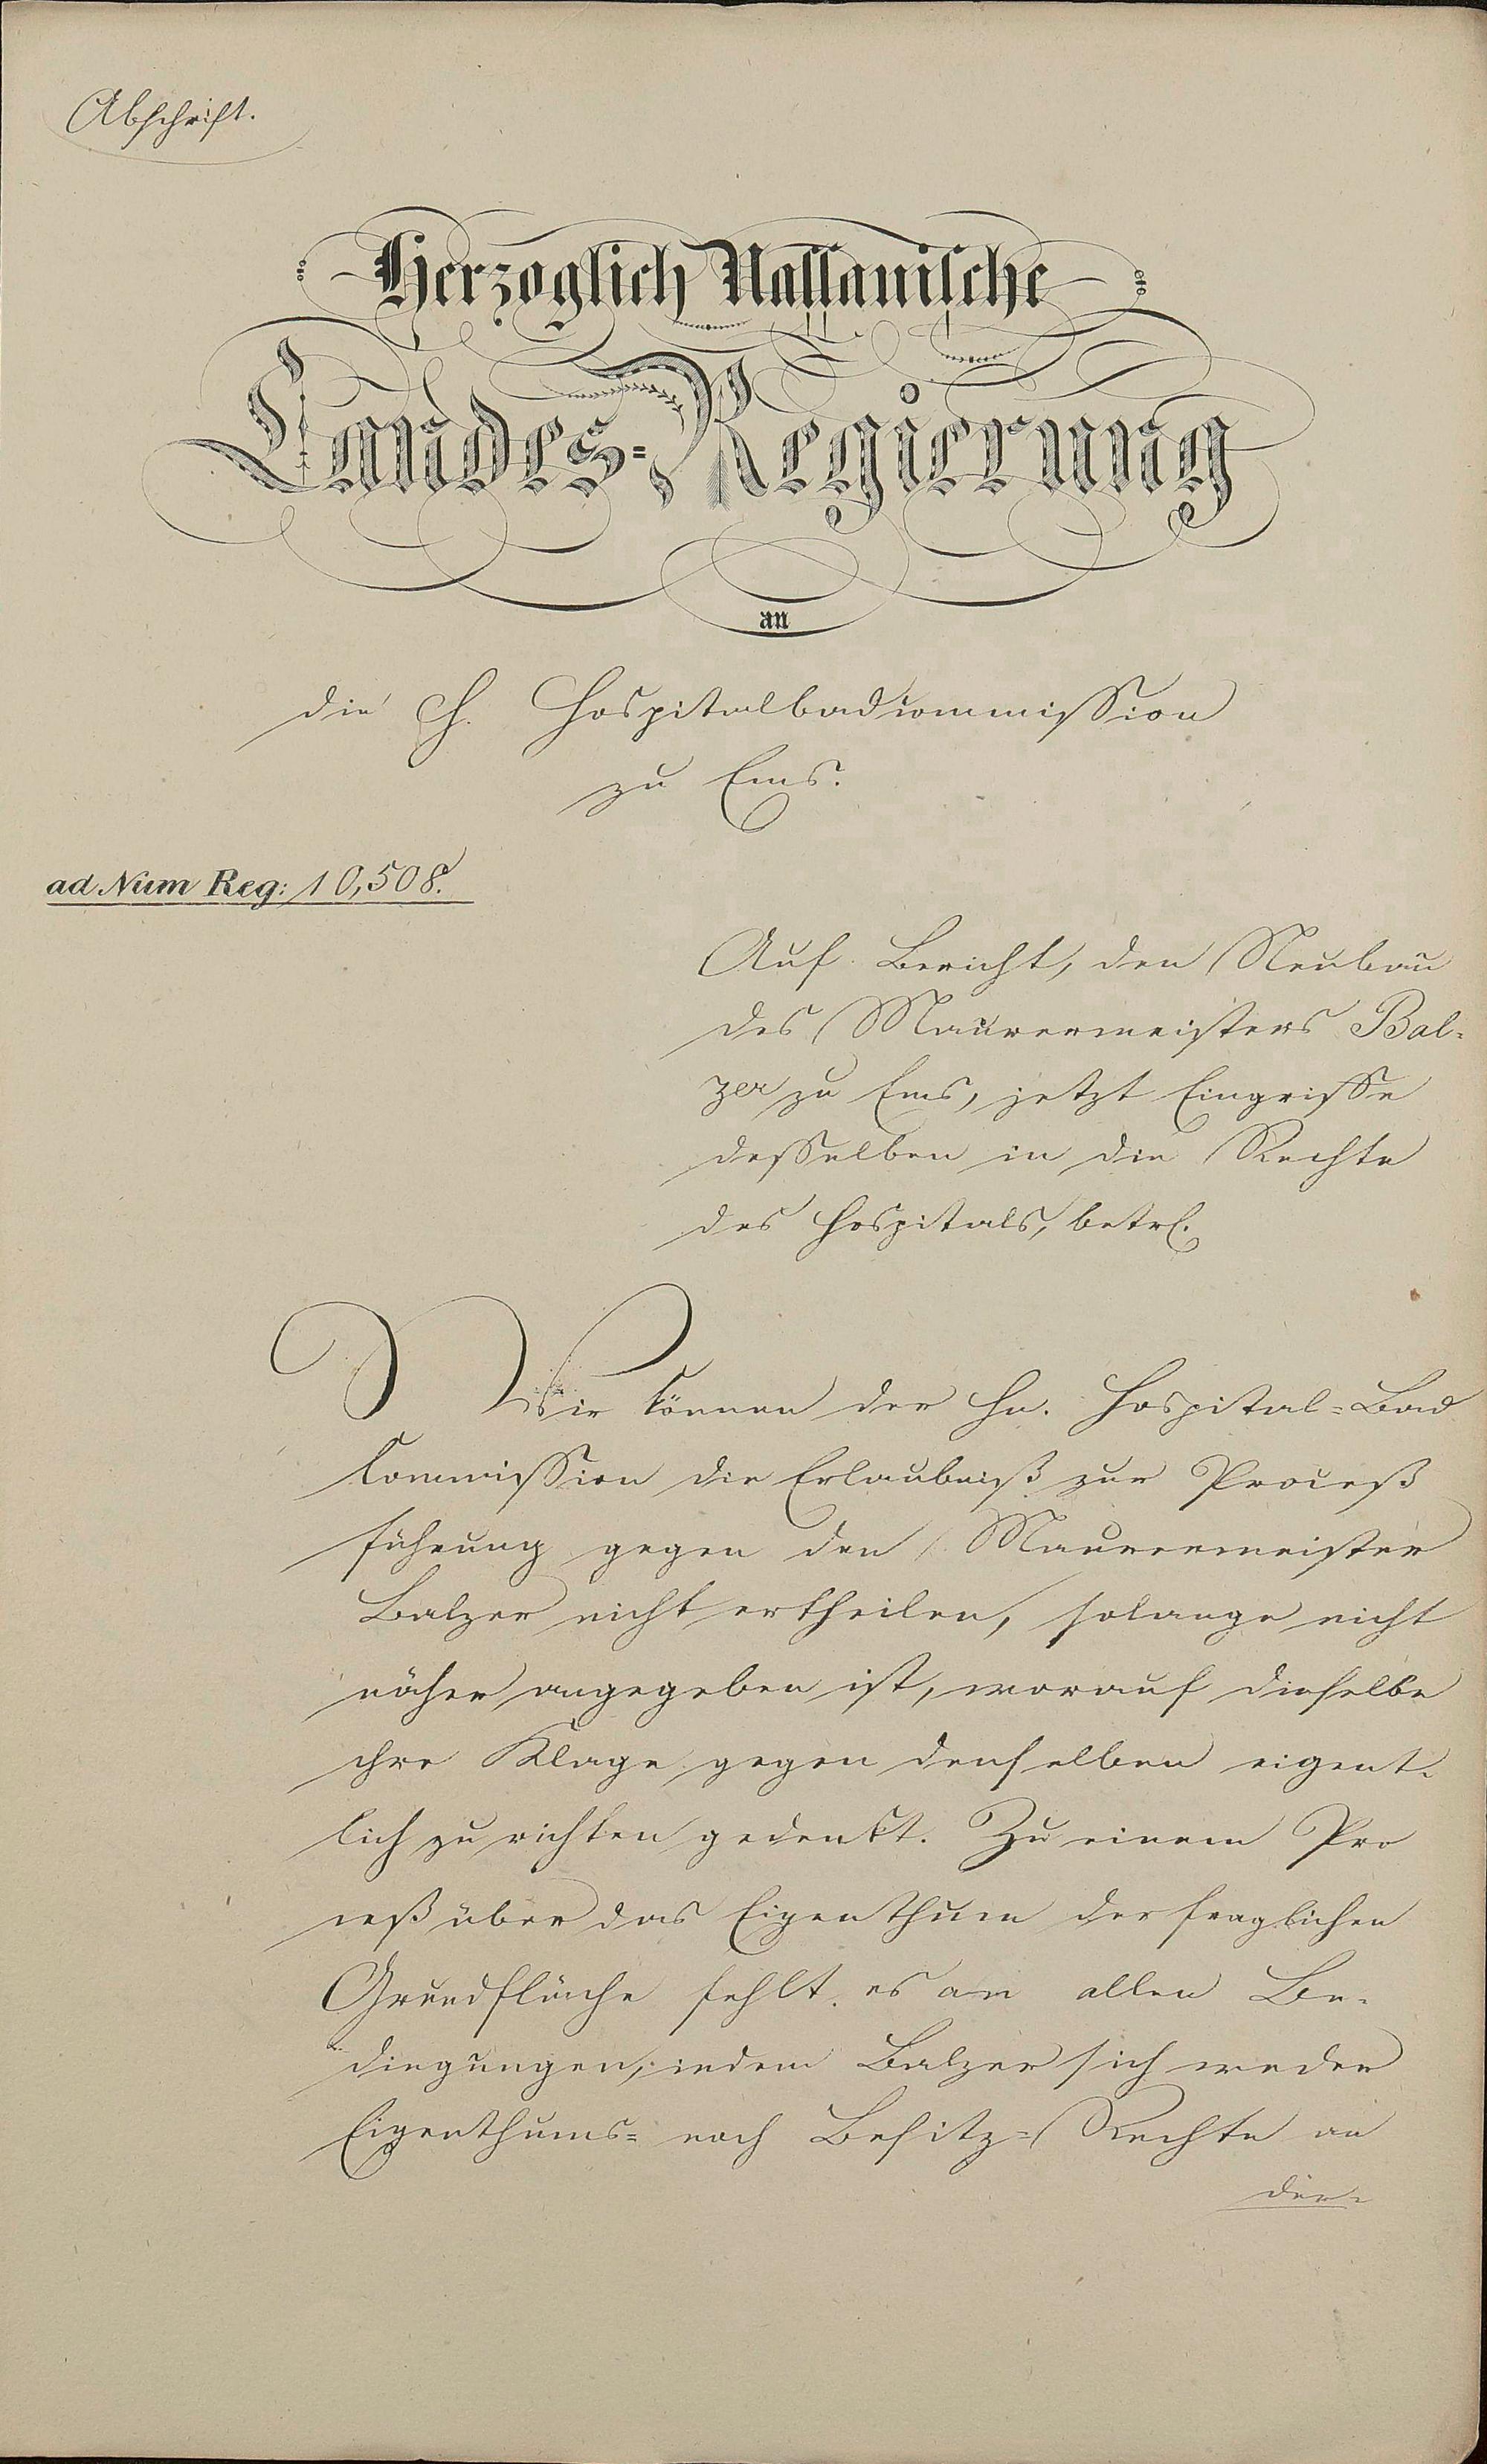 Abschrift.
Herzoglich Nassauische
Landes-Regierung
an
die H. Hospitalbadcommission
zu Ems.
ad Num Reg: 10,508.
Auf Bericht, den Neubau
des Maurermeisters Bal-
zer zu Ems, jetzt Eingriffe
desselben in die Rechte
des Hospitals, betr.
Wir können der Hn. Hospital-Bad
Commission die Erlaubniß zur Proceß
führung gegen den Maurermeister
Balzer nicht ertheilen, solange nicht
näher angegeben ist, worauf dieselbe
ihre Klage gegen denselben eigent-
lich zu richten gedenkt. Zu einem Pro
ceß über das Eigenthum der fraglichen
Grundfläche fehlt es an allen Be-
dingungen, indem Balzer sich weder
Eigenthums- noch Besitz-Rechte an
der-